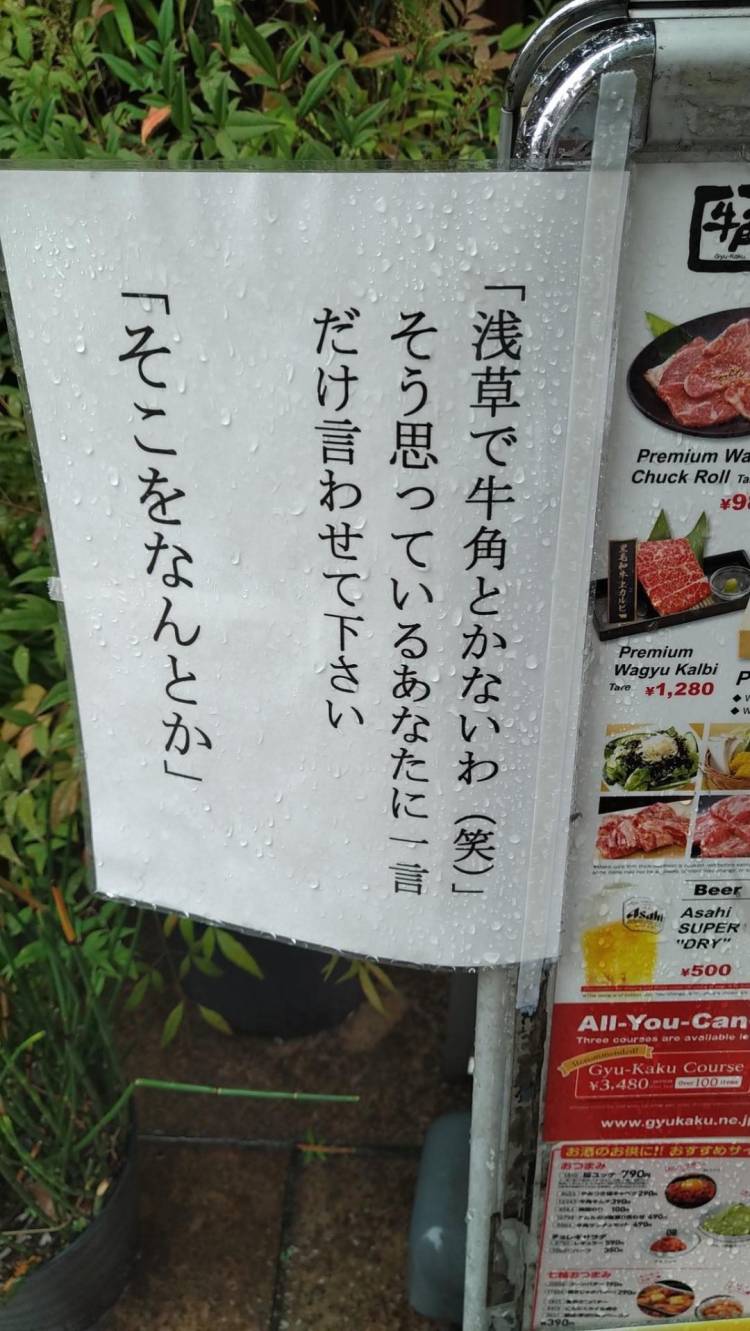 「浅草で牛角とかないわ（笑）」
そう思っているあなたに一言
だけ言わせて下さい
「そこをなんとか」
牛角
Gyu-Kaku
Premium
Chuck Roll
黒毛和牛上カルビ
Premium
Wagyu Kalbi
Tare ¥1,280
Beer
Asahi
Asahi
SUPER
"DRY"
¥500
All-You-Can
Three courses are available
Recommended!
Gyu-Kaku Course
¥3,480 Over 100 items
www.gyukaku.ne.j
お酒のお供に!! おすすめサ
おつまみ
790円
チョレギサラダ
七輪おつまみ
390円